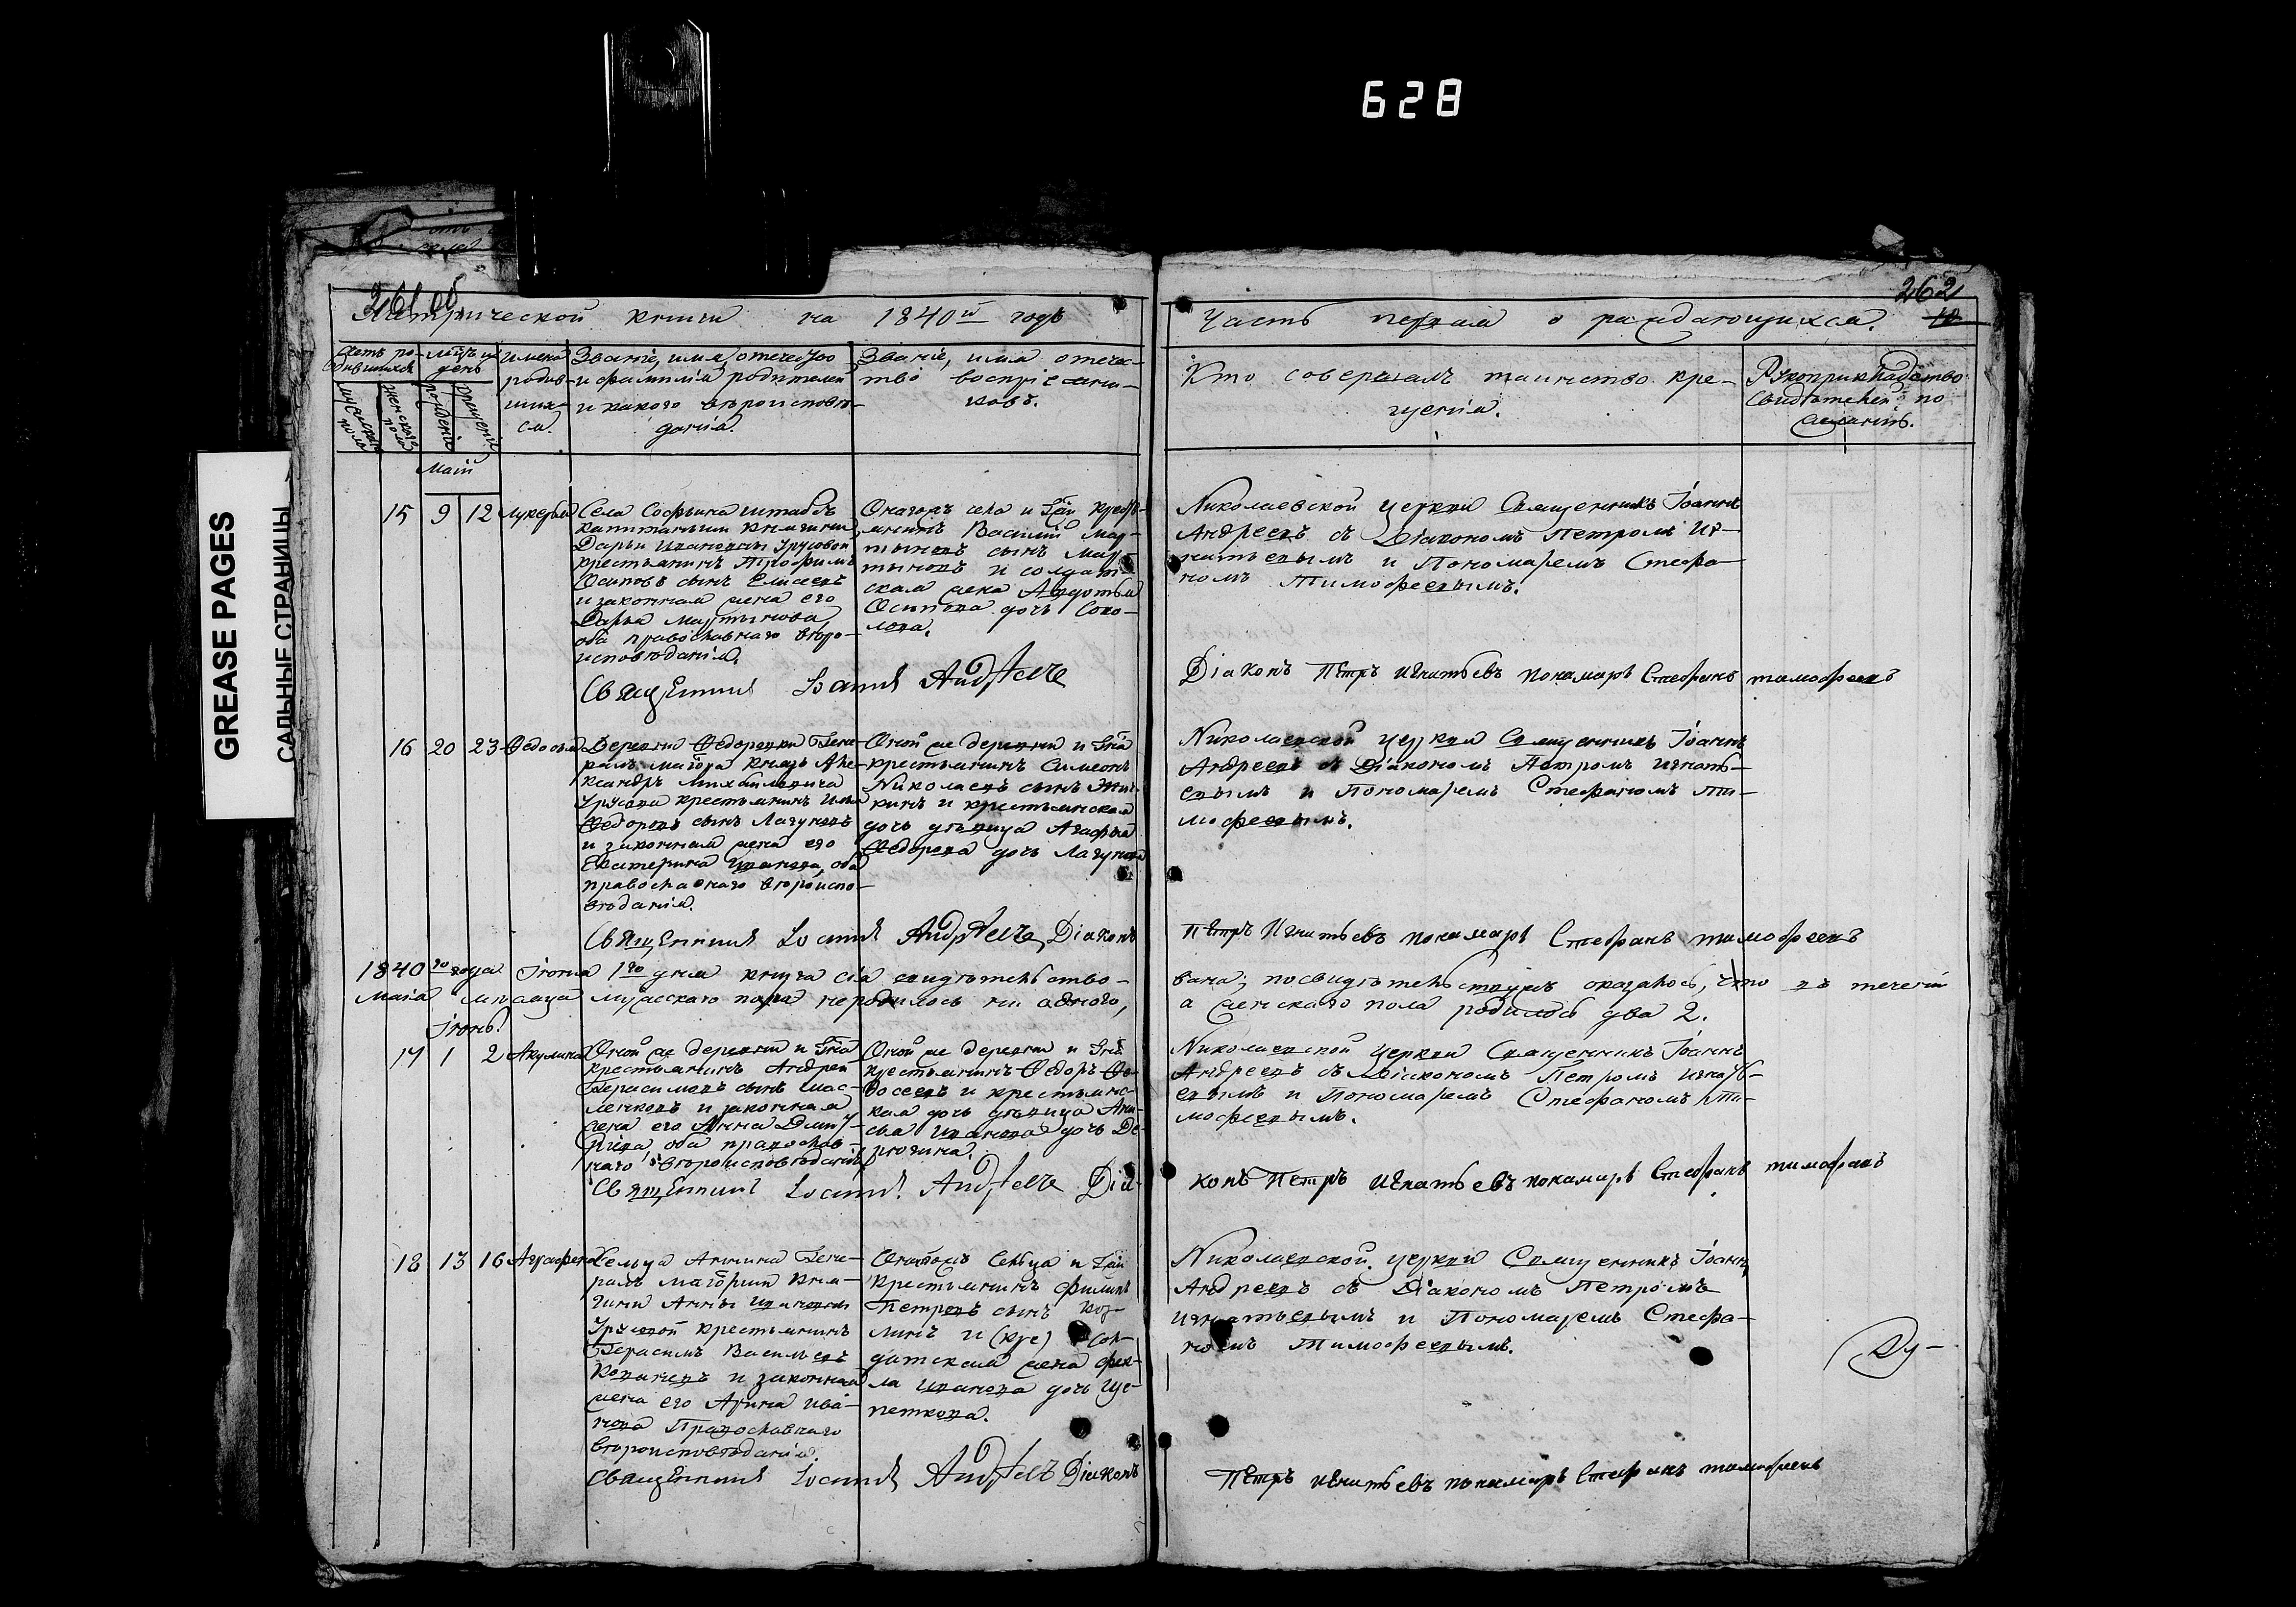 628
GREASE PAGES
САЛЬНЫЕ СТРАНИЦЫ
261 об
Метрической книги на 1840й годъ
Счетъ родившихся
мужеска пола
женскаго пола
Мѣсяцъ и день
рожденія
крещенія
Имена родившихся.
Званіе, имя, отечество
и фамилія родителей
и какого вѣроисповѣ-
данія.
Званіе, имя отечес-
тво воспріемни-
ковъ.
Маій
15 9 12 Лукерья
Села Софьина штабсъ
капитанши княгини
Дарьи Ивановны Урусовой
крестьянинъ Трофимъ
Осиповъ сынъ Елисеевъ
и законная жена его
Дарья Мартынова,
оба православнаго вѣро-
исповѣданія.
Онагожъ села и Гжи кресть-
янинъ Василий Мар-
тыновъ сынъ Мар-
тыновъ и солдат-
ская жена Авдотья
Осипова дочь Соко-
лова.
Священникъ Іоаннъ Андреевъ
16 20 23 Федосья
Деревни Федоревки Гене-
ралъ маіора князь Але-
ксандръ Михайловича
Урусова крестьянинъ Илья
Федоровъ сынъ Лагуновъ
и законная жена его
Екатерина Иванова, оба
православнаго вѣроиспо-
вѣданія.
Оной же деревни и Гна
крестьянинъ Симеонъ
Николаевъ сынъ
кинъ и крестьянская
дочь дѣвица Агафья
Федорова дочь Лагунова
Священникъ Іоаннъ Андреевъ, Діаконъ
1840го года Іюня 1го дня книга сія свидѣтельство-
Маія мѣсяца мужескаго пола не родилось ни одного,
Іюнь.
17 1 2 Акулина
Оной же деревни и Гна
крестьянинъ Андрей
Герасимовъ сынъ Мас-
ленковъ и законная
жена его Анна Дмит-
риева оба православ-
наго вѣроисповѣданія
Оной же деревни и Гна
крестьянинъ Федоръ Фе-
досеевъ и крестьянс-
кая дочь дѣвица Ани-
сья Иванова дочь Де-
рюгина.
Священникъ Іоаннъ Андреевъ Діа-
18 13 16 Аграфена
Сельца Аннина Гене-
ралъ маіорши кня-
гини Анны Ивановны
Урусовой крестьянинъ
Герасимъ Васильевъ
и законная
жена его Арина Ива-
нова Православнаго
вѣроисповѣданія.
Онагожъ Сельца и Гжи
крестьянинъ Филипъ
Петровъ сынъ Коз-
линъ и сол-
датская жена Фек-
ла Иванова дочь Ще-
петкова.
Священникъ Іоаннъ Андреевъ Діаконъ
262
Часть первая о раждающихся.
Кто совершалъ таинство кре-
щенія.
Рукоприкладство
свидѣтелей по
желанію.
Николаевской церкви Священникъ Іоаннъ
Андреевъ съ Діакономъ Петромъ Иг-
натьевымъ и Пономаремъ Стефа-
номъ Тимофеевымъ.
Діаконъ Петръ Игнатьевъ понамарь Стефанъ тимофеевъ
Николаевской церкви Священникъ Іоаннъ
Андреевъ съ Діакономъ Петромъ Игнать-
евымъ и Пономаремъ Стефаномъ Ти-
мофеевымъ.
Петръ Игнатьевъ понамарь Стефанъ тимофеевъ
вана; по свидѣтельствуемъ оказалось, что въ теченіи
а женскаго пола родилось два 2.
Николаевской церкви Священникъ Іоаннъ
Андреевъ съ Діакономъ Петромъ Игнать-
евымъ и Пономаремъ Стефаномъ Ти-
мофеевымъ.
конъ Петръ Игнатьевъ понамарь Стефанъ тимофеевъ
Николаевской церкви Священникъ Іоаннъ
Андреевъ съ Діакономъ Петромъ
Игнатьевымъ и Пономаремъ Стефа-
номъ Тимофеевымъ.
Ду-
Петръ Игнатьевъ понамарь Стефанъ тимофеевъ